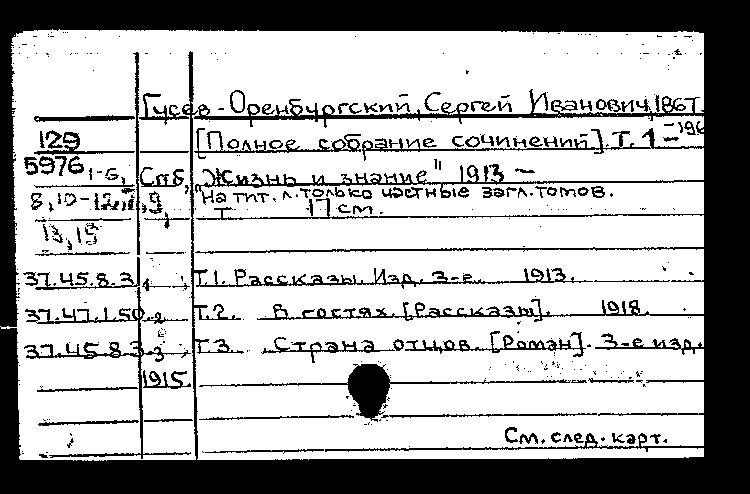 Гусев-Оренбургский, Сергей Иванович, 1867-
129 [Полное собрание сочинений]. Т. 1 - 196
5976 1-6, Спб, "Жизнь и знание" 1913 —
8, 10-12, 9, "На тит. л. только частные загл. томов.
13, 15 17 см.
37.45.8.3 1 Т.1. Рассказы. Изд. 3-е. 1913.
37.47.1.50-2 Т.2. В гостях. [Рассказы]. 1918.
37.45.8.3-3 Т.3. Страна отцов. [Роман]. 3-е изд.
1915.
См. след. карт.